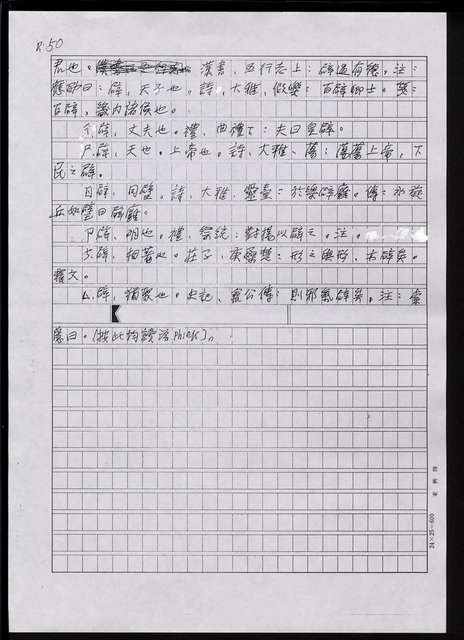 R.50
君也。漢書、五行志上:辟遏有德。注:
應劭曰:辟,天子也。詩、大雅、假樂:百辟卿士。箋:
百辟,畿內諸侯也。
辟,丈夫也。禮、曲禮下:夫曰皇辟。
辟,天也。上帝也。詩、大雅、蕩:蕩蕩上帝,下
民之辟。
辟,同璧。詩、大雅、靈臺:於樂辟廱。傳:水旋
丘如璧曰辟廱。
辟,明也。禮、祭統:對揚以辟之。注。
辟,相著也。莊子、庚桑楚:形之與形,亦辟矣。
釋文。
辟,猶聚也。史記、倉公傳:則邪氣辟矣。注:索
隱曰。(按此均讀活phiek)。
24×25=600